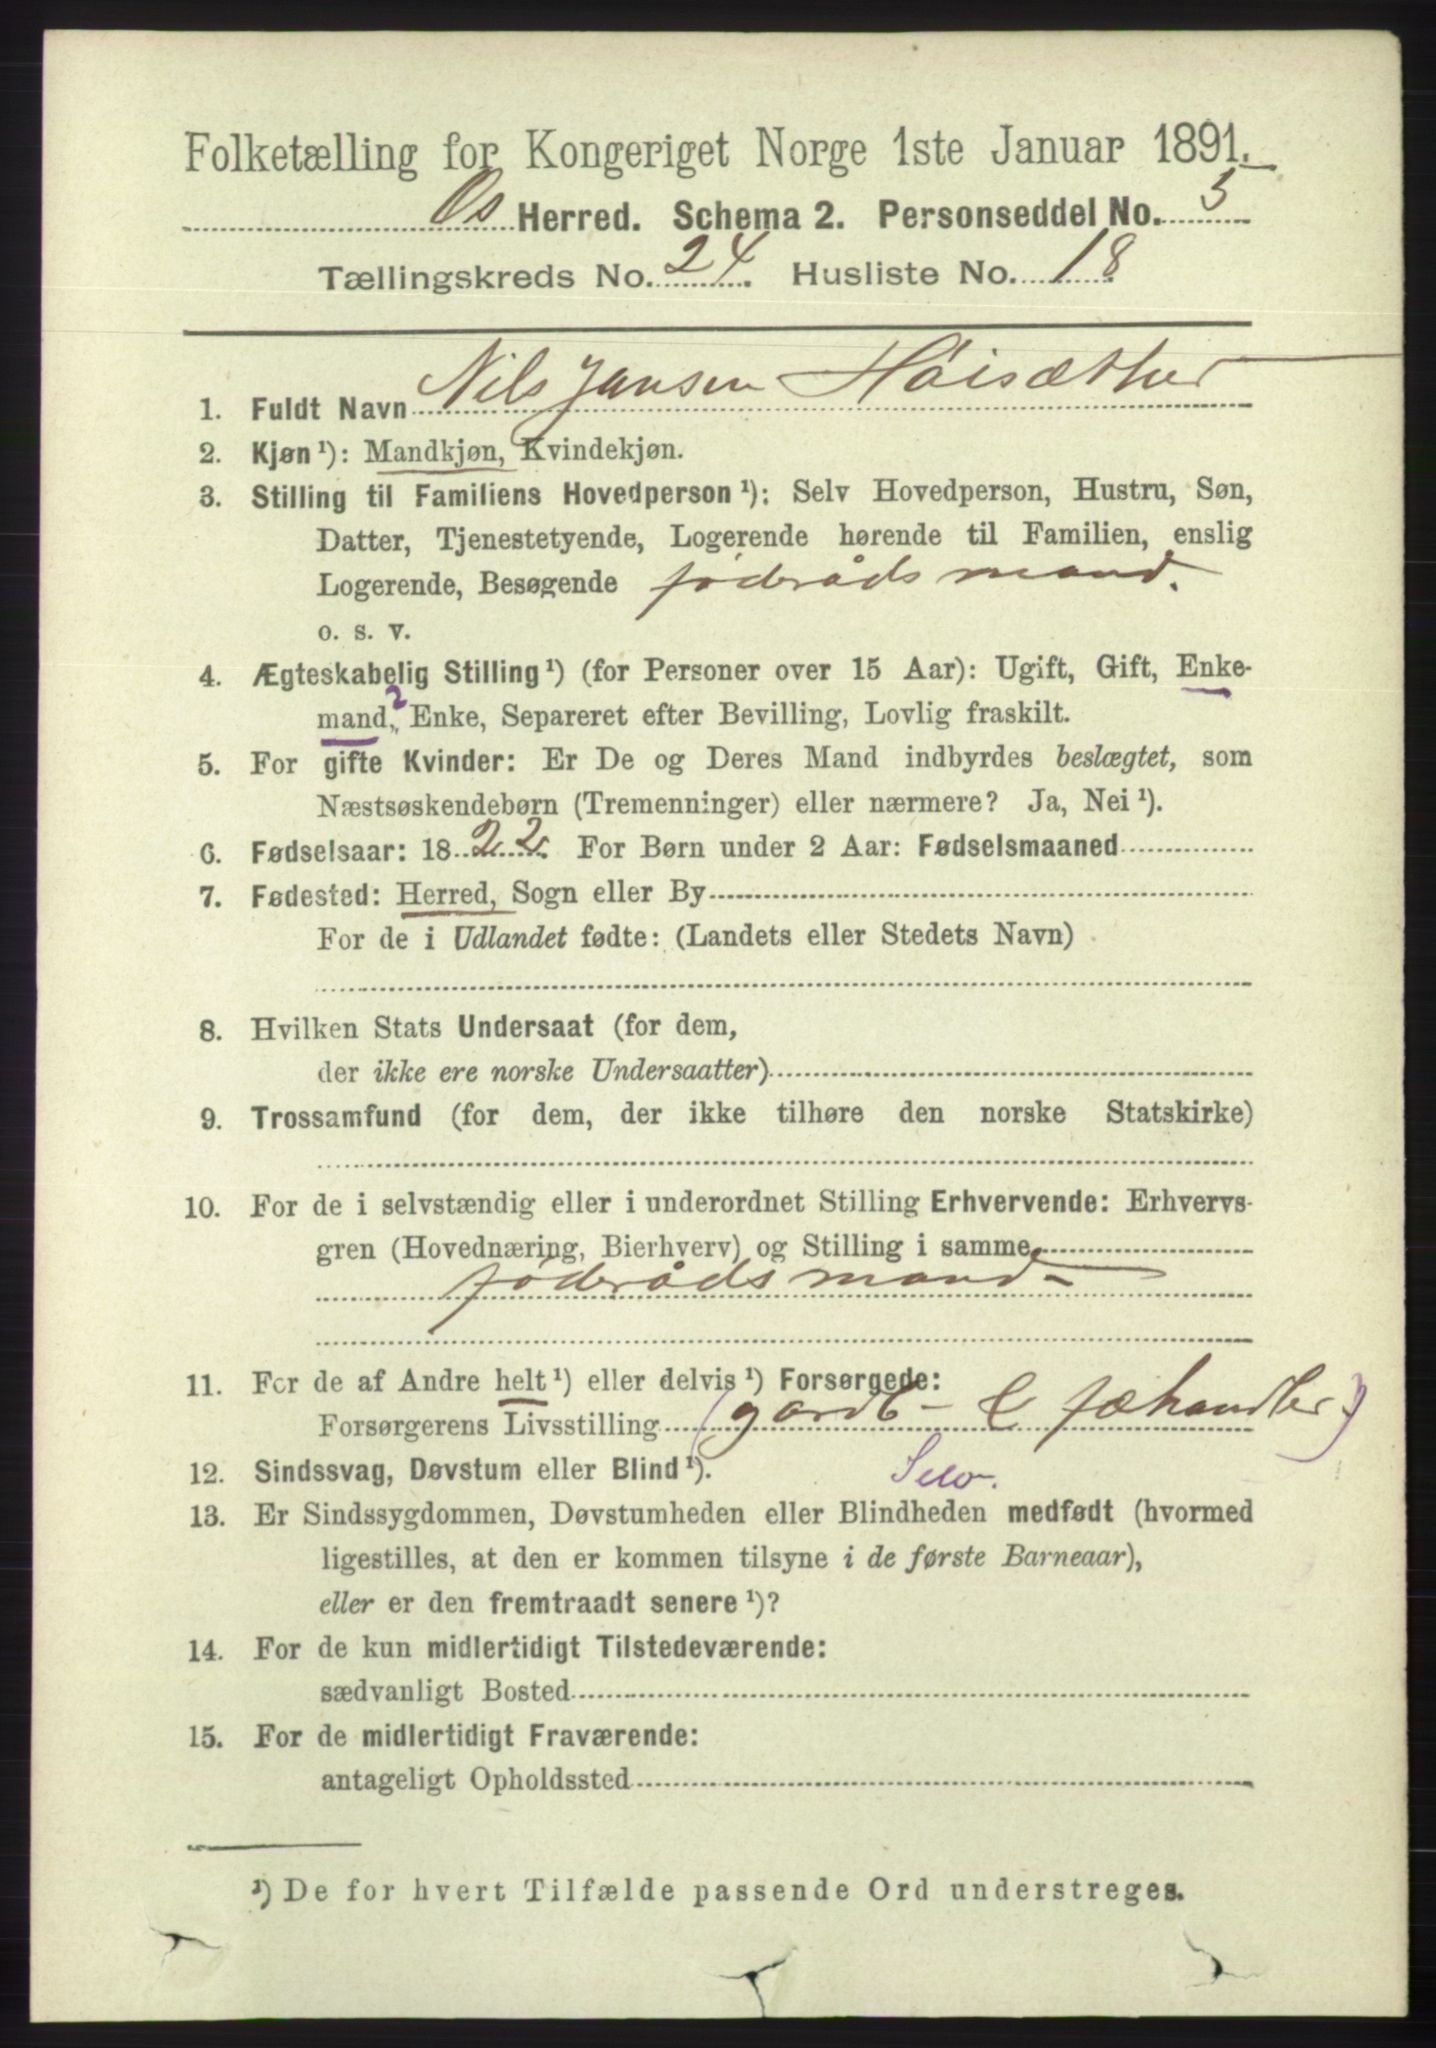 Folketælling for Kongeriget Norge 1ste Januar 1891.
Os Herred. Schema 2. Personseddel No. 5
Tællingskreds No. 24. Husliste No. 18
1. Fuldt Navn Nils Jansen Høisæther
2. Kjøn ¹): Mandkjøn, Kvindekjøn.
3. Stilling til Familiens Hovedperson ¹): Selv Hovedperson, Hustru, Søn,
Datter, Tjenestetyende, Logerende hørende til Familien, enslig
Logerende, Besøgende föderådsmand.
o. s. v.
4. Ægteskabelig Stilling ¹) (for Personer over 15 Aar): Ugift, Gift, Enke-
mand,² Enke, Separeret efter Bevilling, Lovlig fraskilt.
5. For gifte Kvinder: Er De og Deres Mand indbyrdes beslægtet, som
Næstsøskendebørn (Tremenninger) eller nærmere? Ja, Nei ¹).
6. Fødselsaar: 1822. For Børn under 2 Aar: Fødselsmaaned
7. Fødested: Herred, Sogn eller By
For de i Udlandet fødte: (Landets eller Stedets Navn)
8. Hvilken Stats Undersaat (for dem,
der ikke ere norske Undersaatter)
9. Trossamfund (for dem, der ikke tilhøre den norske Statskirke)
10. For de i selvstændig eller i underordnet Stilling Erhvervende: Erhvervs-
gren (Hovednæring, Bierhverv) og Stilling i samme
föderådsmand
11. For de af Andre helt ¹) eller delvis ¹) Forsørgede:
Forsørgerens Livsstilling (gardb- & fæhandler)
12. Sindssvag, Døvstum eller Blind ¹). Selv.
13. Er Sindssygdommen, Døvstumheden eller Blindheden medfødt (hvormed
ligestilles, at den er kommen tilsyne i de første Barneaar),
eller er den fremtraadt senere ¹)?
14. For de kun midlertidigt Tilstedeværende:
sædvanligt Bosted
15. For de midlertidigt Fraværende:
antageligt Opholdssted
¹) De for hvert Tilfælde passende Ord understreges.